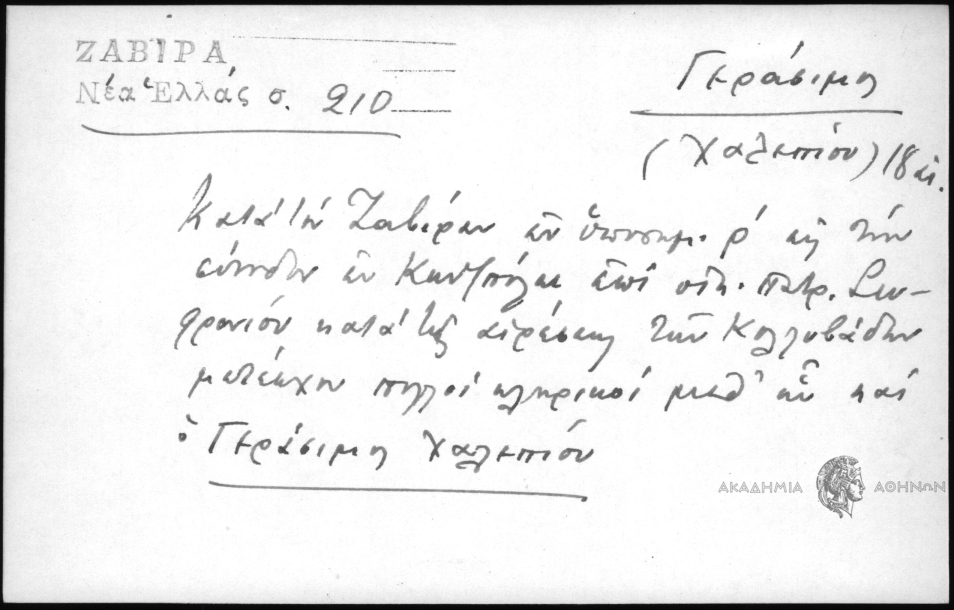 ΖΑΒΙΡΑ
Νέα Ἑλλάς σ. 210
Γεράσιμος
(Χαλεπίου) 18 αἰ.
Κατὰ τὸν Ζαβίραν ἐν ὑποσημ. εἰς τὴν
σύνοδον ἐν Κων/πόλει ἐπὶ οἰκ. πατρ. Σω-
φρονίου κατὰ τῆς αἱρέσεως τῶν Κολλυβάδων
μετέσχον πολλοὶ κληρικοὶ μεθ' ὧν καὶ
ὁ Γεράσιμος Χαλεπίου
ΑΚΑΔΗΜΙΑ ΑΘΗΝΩΝ